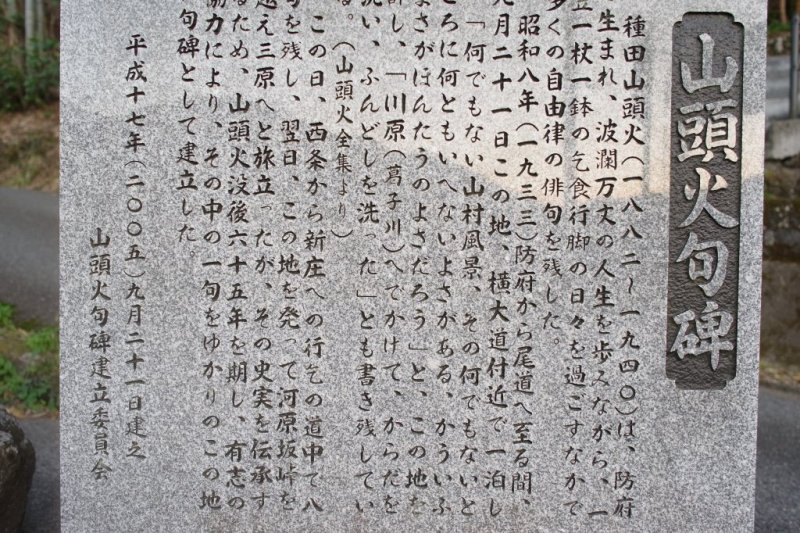 山頭火句碑
種田山頭火(一八八二~一九四〇)は、防府
生まれ、波瀾万丈の人生を歩みながら、一
笠一杖一鉢の乞食行脚の日々を過ごすなかで
多くの自由律の俳句を残した。
昭和八年(一九三三)防府から尾道へ至る間、
九月二十一日この地、横大道付近で一泊し
「何でもない山村風景、その何でもないと
ころに何ともいへないよさがある、かういふ
よさがほんたうのよさだろう」と、この地を
し、「川原(葛子川)へでかけて、からだを
洗い、ふんどしを洗った」とも書き残してい
る。(山頭火全集より)
この日、西条から新庄への行乞の道中で八
句を残し、翌日、この地を発って河原坂峠を
越え三原へと旅立ったが、その史実を伝承す
るため、山頭火没後六十五年を期し、有志の
協力により、その中の一句をゆかりのこの地
句碑として建立した。
平成十七年(二〇〇五)九月二十一日建之
山頭火句碑建立委員会